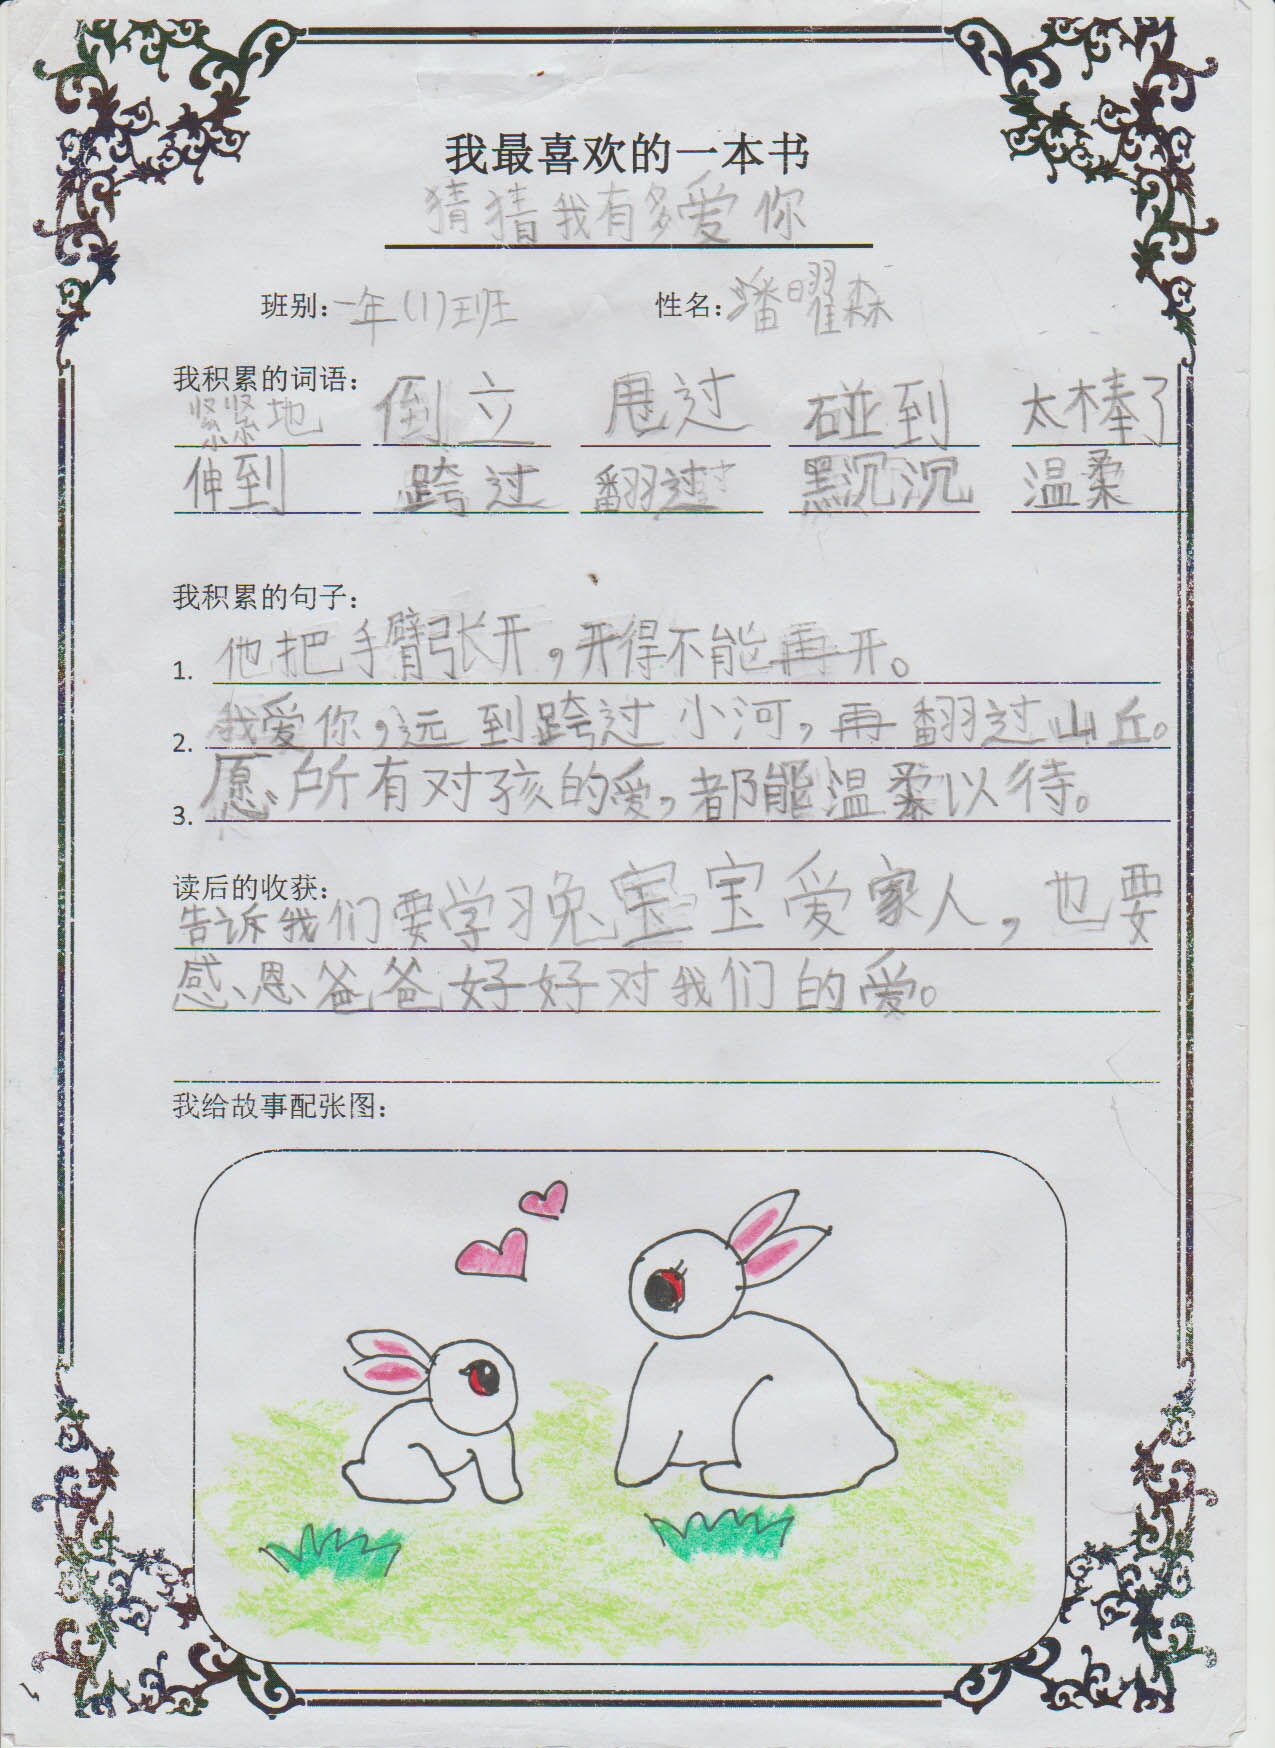 我最喜欢的一本书
猜猜我有多爱你
班别：一年(1)班 性名：潘曜森
我积累的词语：
紧紧地 倒立 甩过 碰到 太棒了
伸到 跨过 翻过 黑沉沉 温柔
我积累的句子：
1. 他把手臂张开，开得不能再开。
2. 我爱你，远到跨过小河，再翻过山丘。
3. 愿所有对孩的爱，都能温柔以待。
读后的收获：
告诉我们要学习兔宝宝爱家人，也要
感恩爸爸好好对我们的爱。
我给故事配张图：